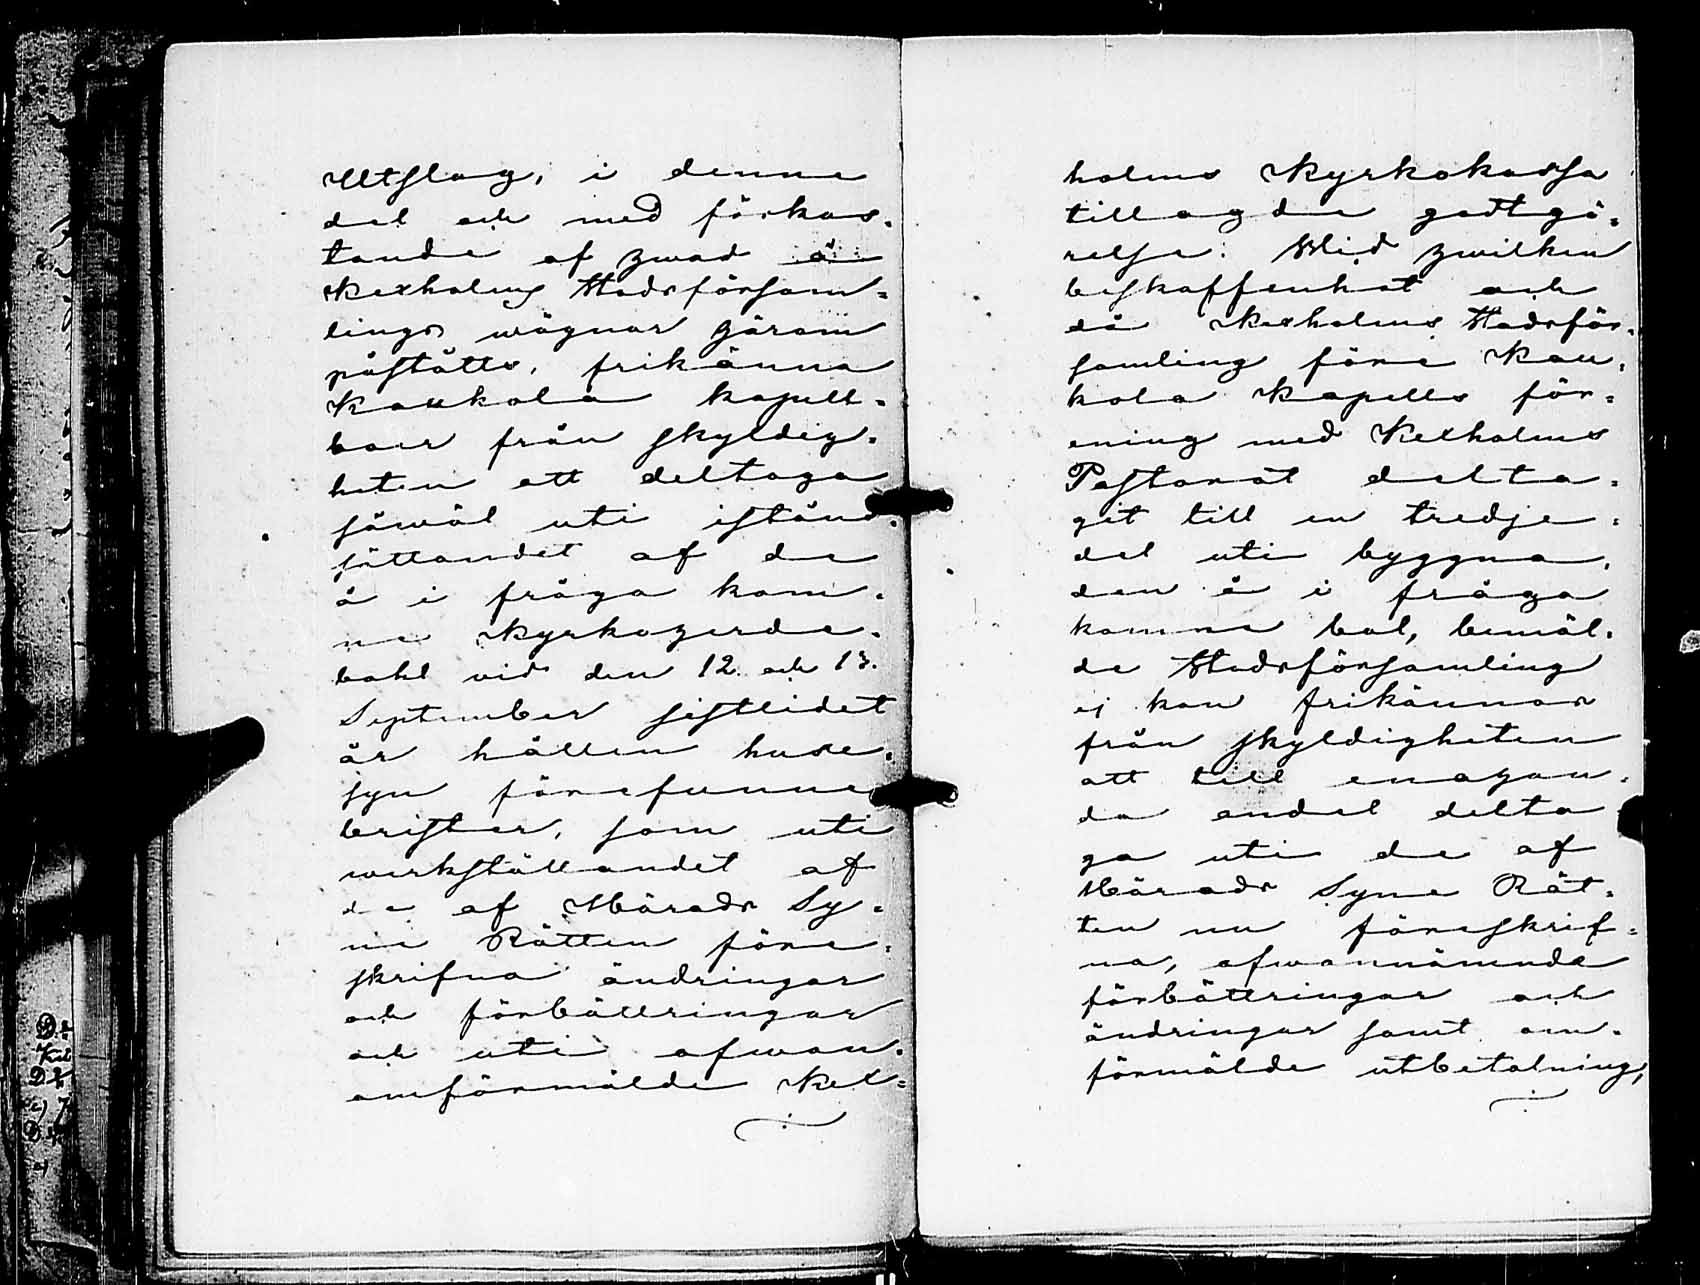 Utslag, i denna
del och med förkas-
tande af hwad å
Kexholms Stadsförsam-
lings wägnar härom
påståtts, frikänna
Kaukola kapell-
boer från skyldig-
heten att deltaga
såwäl uti istånd-
sättandet af de
å i fråga kom-
ne Kyrkoherde-
bohl vid den 12 och 13.
September sistledet
år hållen huse-
syn förefunne
brister, som uti
werkställandet af
de af Härads Sy-
ne Rätten före-
skrifna ändringar
och förbättringar
och uti ofwan-
omförmälde Kex-
holms Kyrkokassa
tillagde godtgö-
relse. Wid hwilken
beskaffenhet och
då Kexholms Stadsför-
samling före Kau-
kola Kapells för-
ening med Kexholms
Pastorat delta-
git till en tredje-
del uti byggna-
den å i fråga
komne bol, bemäl-
de Stadsförsamling
ej kan frikännas
från skyldigheten
att till enahan-
da andel delta
ga uti de af
Härads Syne Rät-
ten nu föreskrif-
na, ofwannämnda
förbättringar och
ändringar samt om-
förmälde utbetalning,